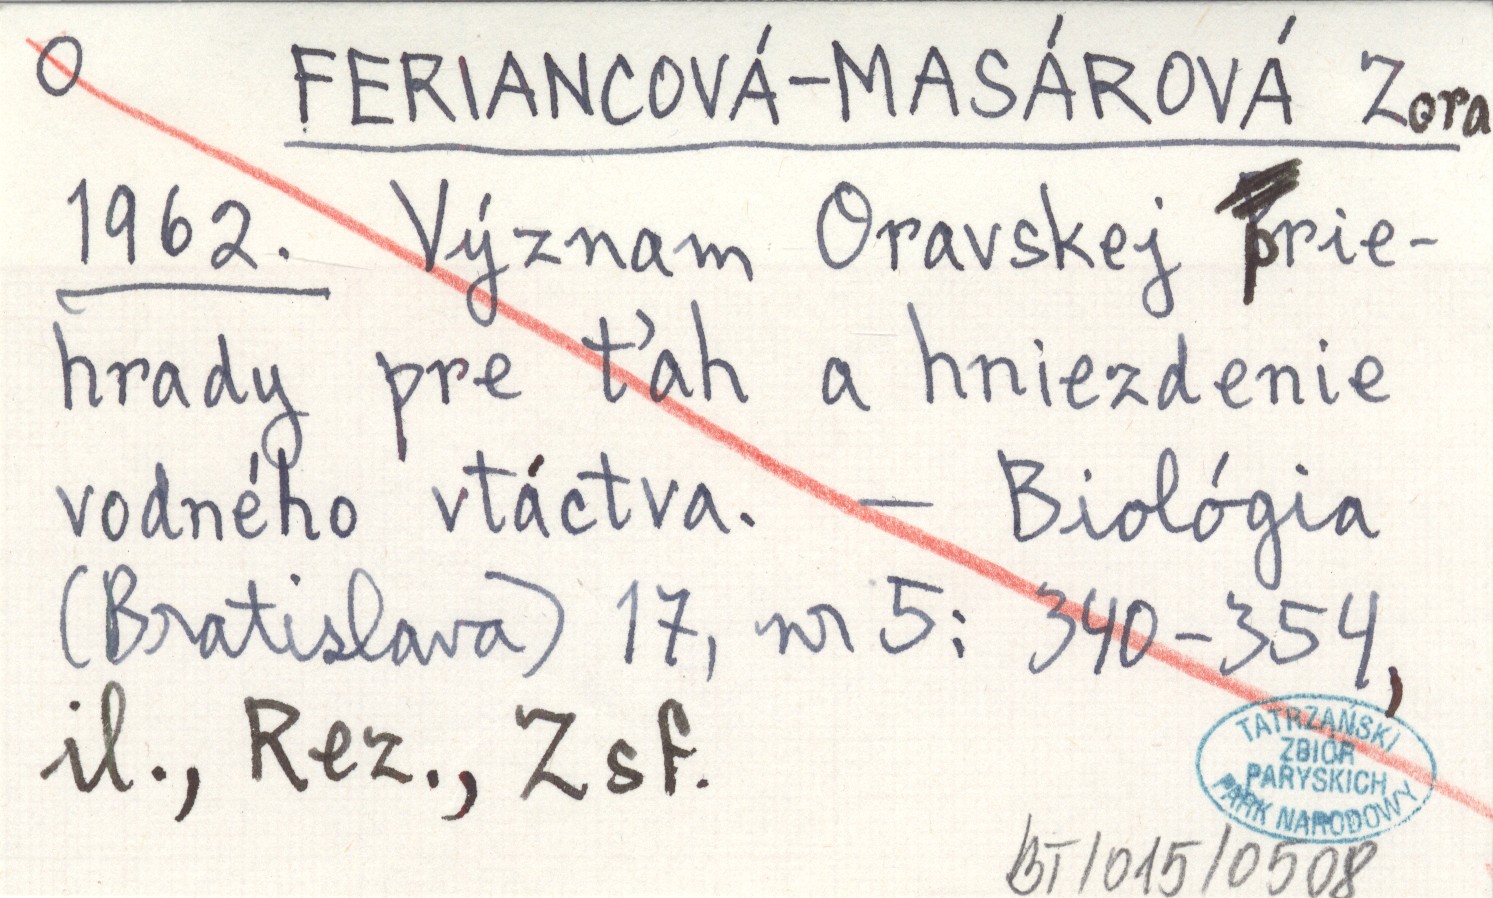 O FERIANCOVÁ-MASÁROVÁ Zora
1962. Význam Oravskej prie-
hrady pre ťah a hniezdenie
vodného vtáctva. — Biológia
(Bratislava) 17, nr 5: 340-354,
il., Rez., Zsf.
TATRZAŃSKI
ZBIÓR
PARYSKICH
PARK NARODOWY
BT/015/0508